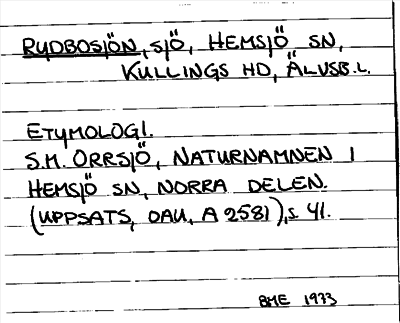 RYDBOSJÖN, SJÖ, HEMSJÖ SN,
KULLINGS HD, ÄLVSB. L.
ETYMOLOGI.
S.M. ORRSJÖ, NATURNAMNEN I
HEMSJÖ SN, NORRA DELEN.
(UPPSATS, OAU, A 2581), S 41.
BME 1973